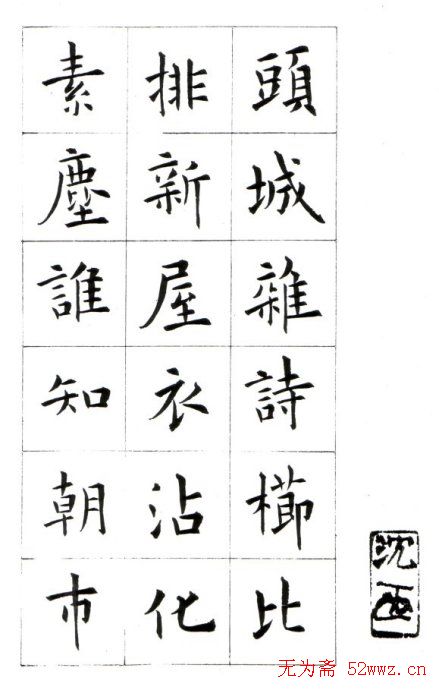 頭城雜詩櫛比
排新屋衣沾化
素塵誰知朝市
沈
无为斋 52wwz.cn